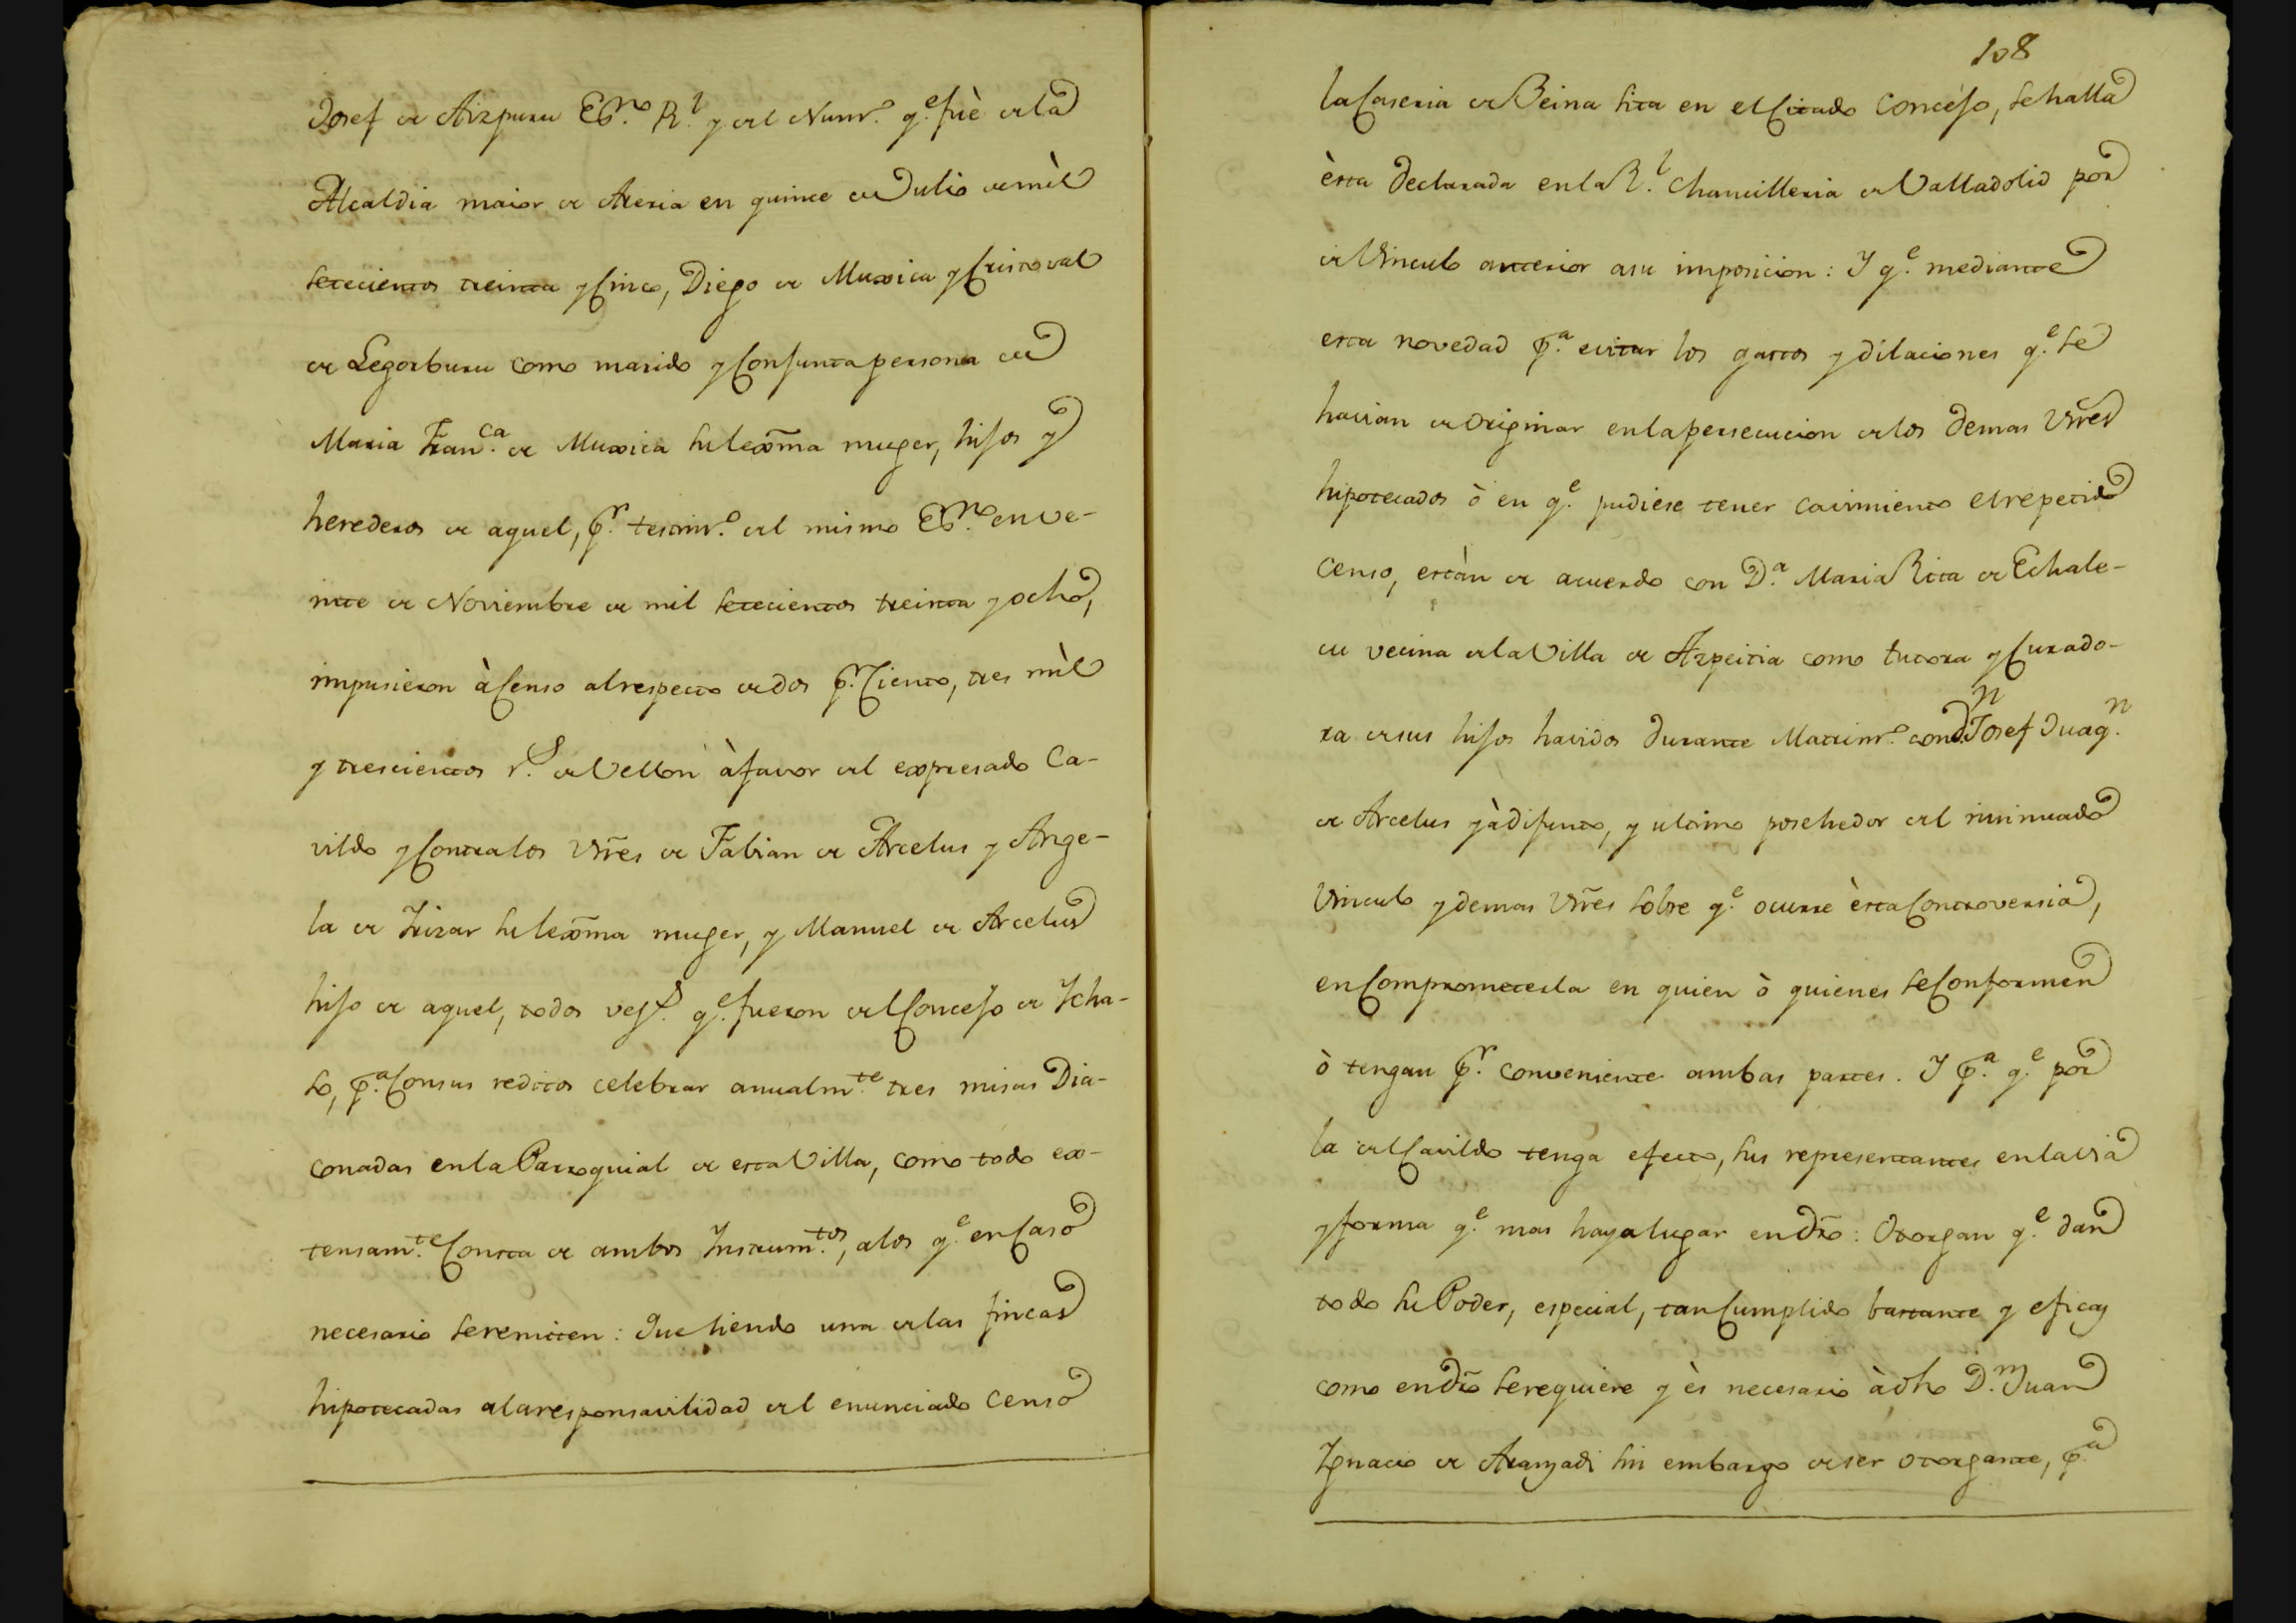 Josef de Aizpuru Es.no R.l y del Num.o q.e fuè de la
Alcaldia maior de Areria en quince de Julio de mil
setecientos treinta y Cinco, Diego de Muxica y Cristoval
de Legorburu como marido y Conjunta persona de
Maria Fran.ca de Muxica su lexma muger, hijos y
herederos de aquel, p.r testim.o del mismo Es.no en ve-
inte de Noviembre de mil setecientos treinta y ocho,
impusieron à Censo al respecto de dos p.r Ciento, tres mil
y trescientos r.s de Vellon à favor del expresado Ca-
vildo y Contra los Vnes de Fabian de Arcelus y Ange-
la de Irizar su lexma muger, y Manuel de Arcelus
hijo de aquel, todos vez.s q.e fueron del Concejo de Icha-
so, p.a Con sus reditos celebrar anualm.te tres misas Dia-
conadas en la Parroquial de esta Villa, como todo ex-
tensam.te Consta de ambos Instrum.tos, alos q.e en Caso
necesario se remiten: Que siendo una de las fincas
hipotecadas ala responsavilidad del enunciado Censo
108
la Caseria de Beina sita en el Citado Concejo, se halla
èsta declarada en la R.l Chancilleria de Valladolid por
de Vinculo anterior asu imposicion: I q.e mediante
esta novedad p.a evitar los gastos y dilaciones q.e se
havian de originar en la persecucion de los demas Vnes
hipotecados ò en q.e pudiese tener cavimiento el repetido
Censo, estàn de acuerdo con D.a Maria Rita de Echale-
cu vecina de la Villa de Azpeitia como tutora y Curado-
ra de sus hijos havidos durante Matrim.o con D.n Josef Juaq.n
de Arcelus yà difunto, y ultimo posehedor del insinuado
Vinculo y demas Vnes sobre q.e ocurre èsta Controversia,
en Comprometerla en quien ò quienes se Conformen
ò tengan p.r conveniente ambas partes. I p.a q.e por
la del Cavildo tenga efecto, sus representantes en la via
y forma q.e mas haya lugar en dro: Otorgan q.e dan
todo su Poder, especial, tan Cumplido bastante y eficaz
como en dro se requiere y ès necesario à dho D.n Juan
Ignacio de Aranzadi sin embargo de ser otorgante, p.a